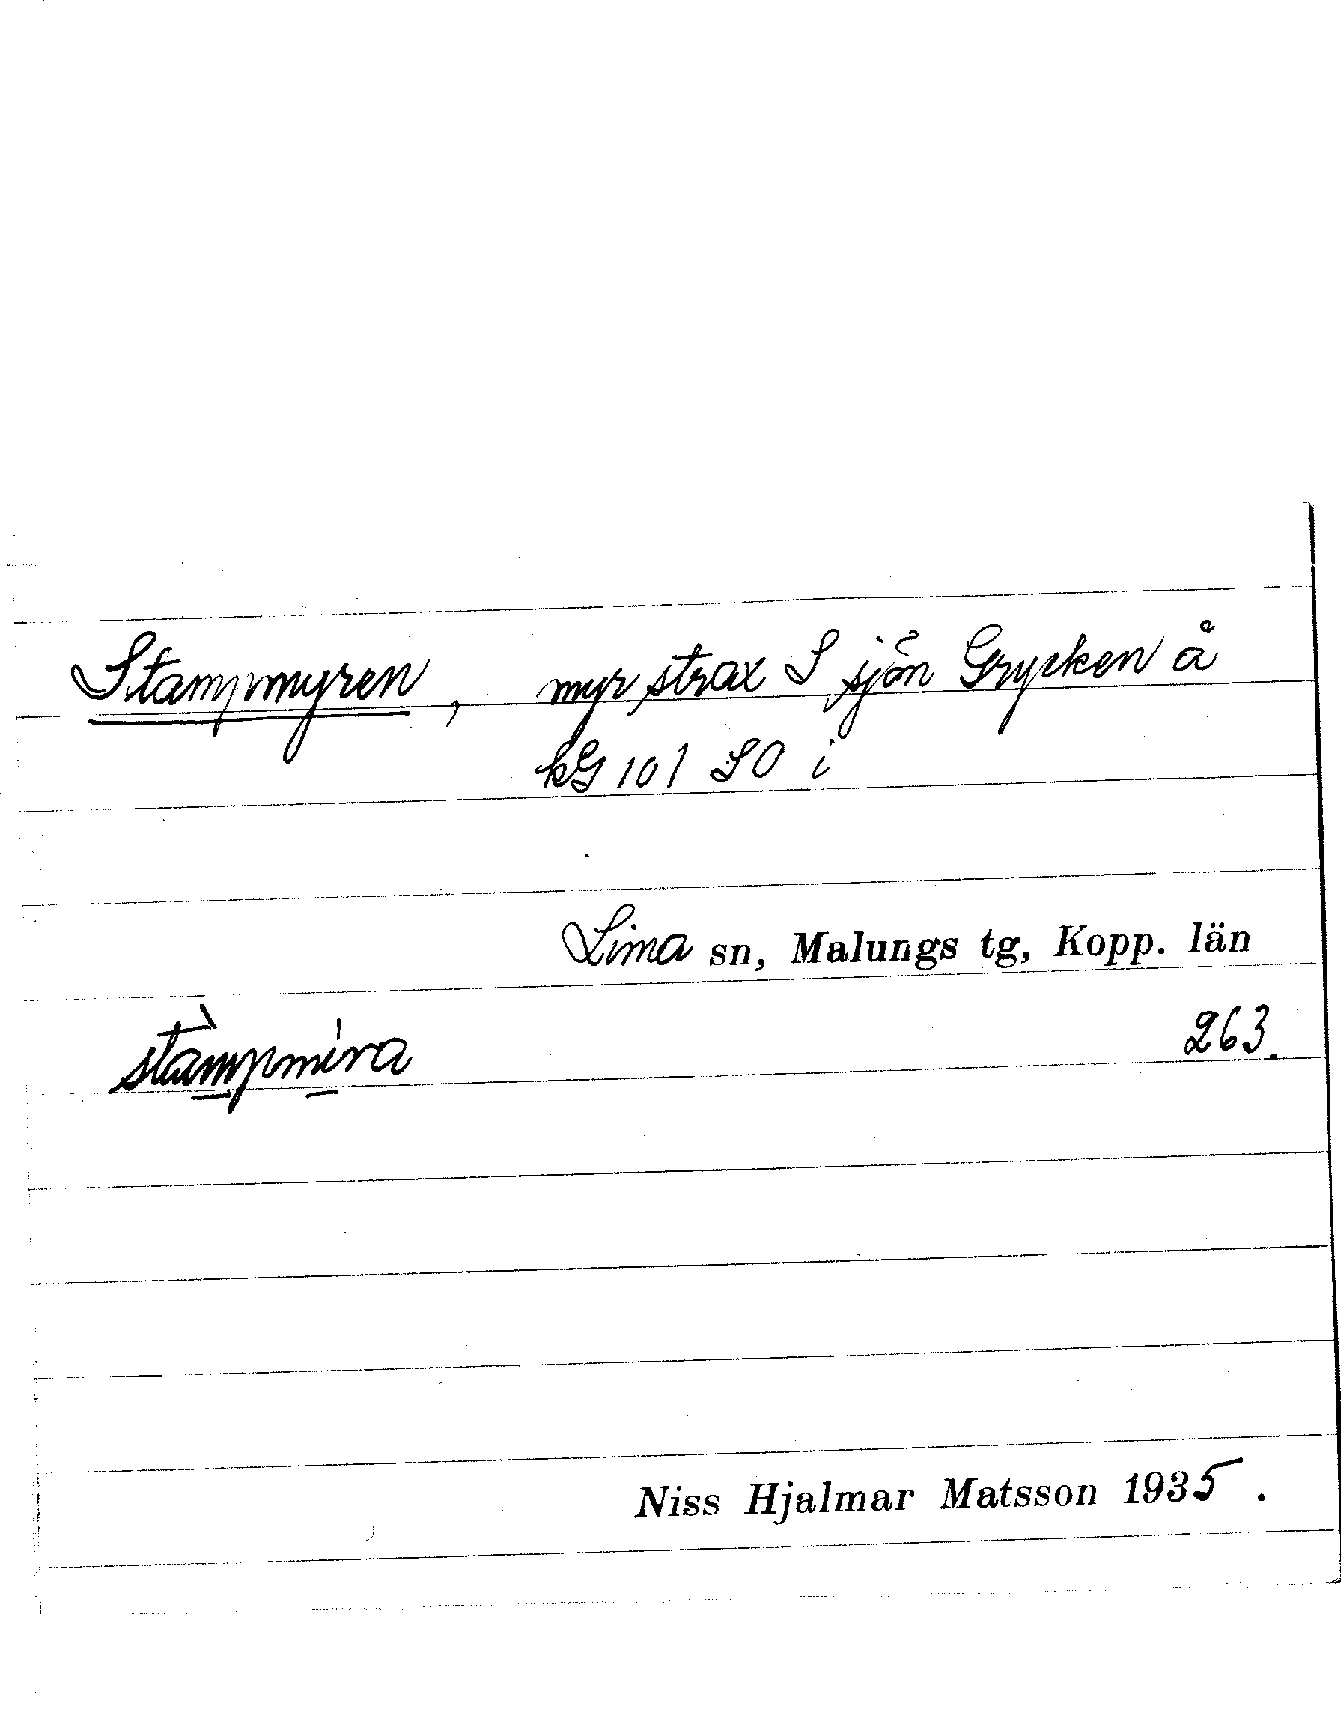 Stampmyren, myr strax S sjön Grycken å
kG 101 SO i
Lima sn, Malungs tg, Kopp. län
stàmpmíra 263.
Niss Hjalmar Matsson 1935.